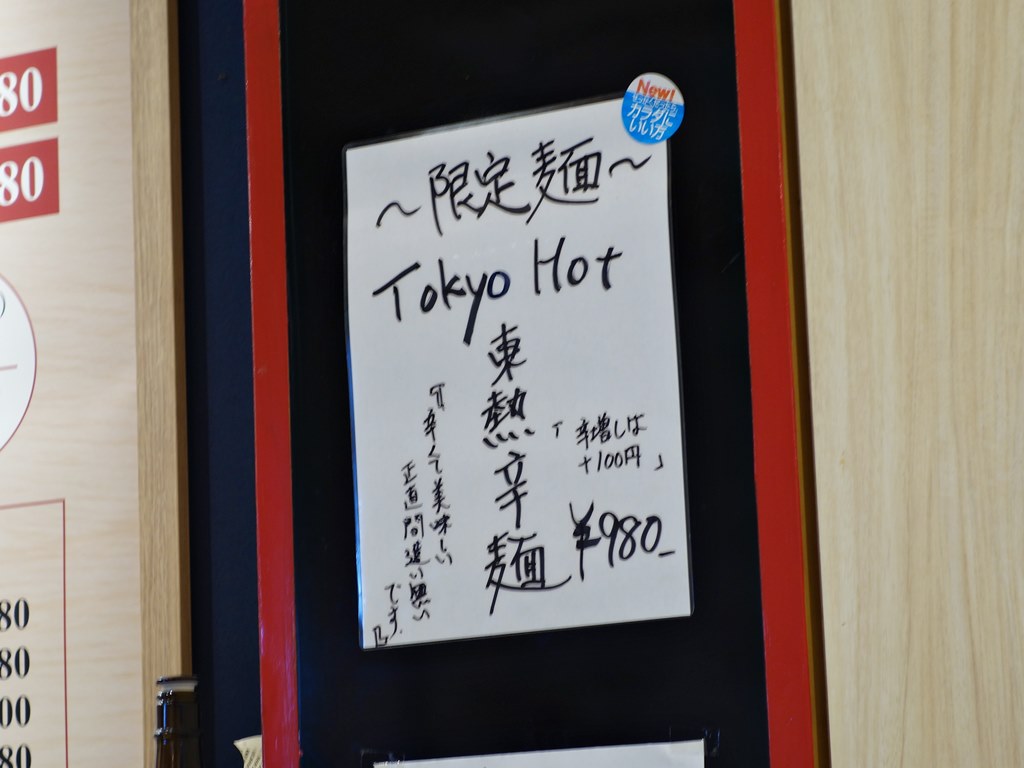 New!
カラダに
いい方
～限定麺～
Tokyo Hot
東熱辛麺
「辛増しは
+100円」
¥980-
『辛くて美味しい
正直間違い無い
です。』
80
80
80
80
00
80